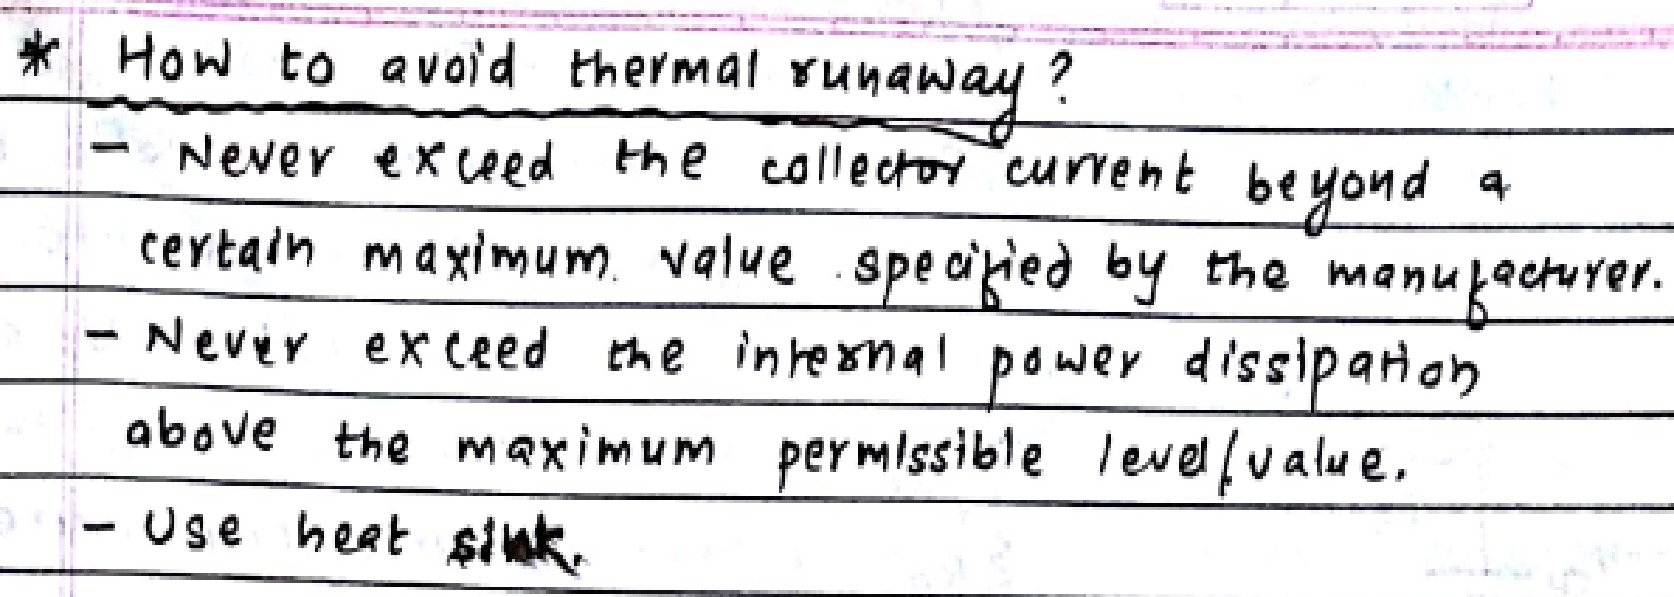 * How to avoid thermal runaway?
- Never exceed the collector current beyond a
certain maximum value specified by the manufacturer.
- Never exceed the internal power dissipation
above the maximum permissible level/value.
- Use heat sink.